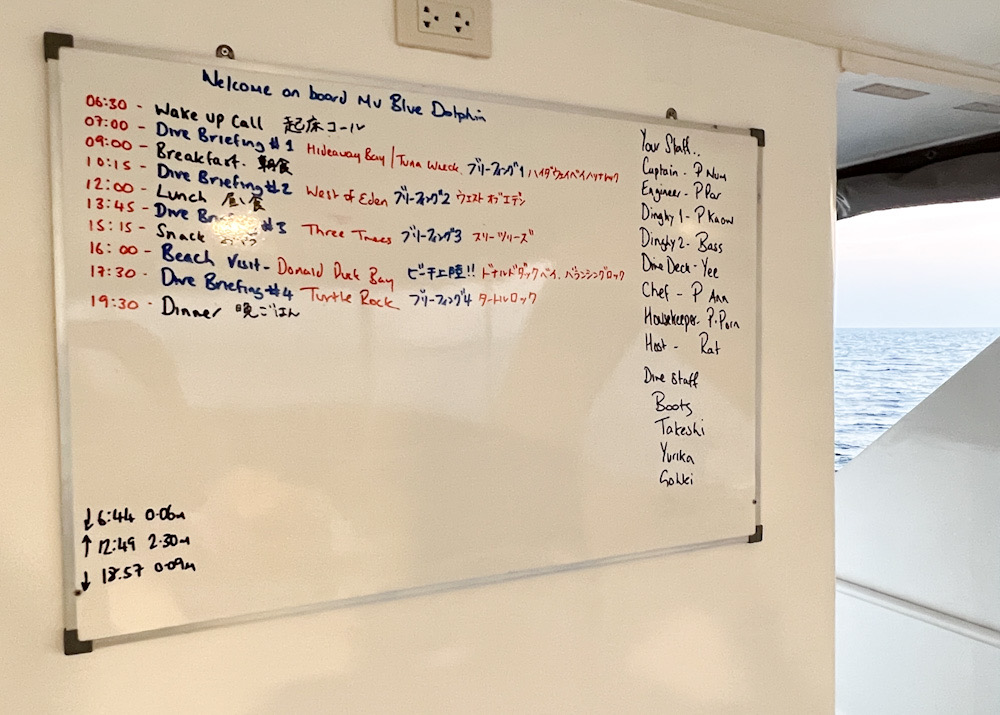 Welcome on board MV Blue Dolphin
06:30 - Wake up Call 起床コール
07:00 - Dive Briefing #1 Hideaway Bay / Tuna Wreck ブリーフィング1 ハイダウェイベイ/ツナレック
09:00 - Breakfast. 朝食
10:15 - Dive Briefing #2 West of Eden ブリーフィング2 ウエスト オブ エデン
12:00 - Lunch 昼食
13:45 - Dive Briefing #3 Three Trees ブリーフィング3 スリーツリーズ
15:15 - Snack
16:00 - Beach Visit - Donald Duck Bay ビーチ上陸!! ドナルドダックベイ、バランシングロック
17:30 - Dive Briefing #4 Turtle Rock ブリーフィング4 タートルロック
19:30 - Dinner 晩ごはん
↓ 6:44 0.06m
↑ 12:49 2.30m
↓ 18:57 0.09m
Your Staff..
Captain - P Num
Engineer - P Por
Dinghy 1 - P Kaow
Dinghy 2 - Bass
Dive Deck - Yee
Chef - P Ann
Housekeeper - P.Porn
Host - Rat
Dive Staff
Boots
Takeshi
Yurika